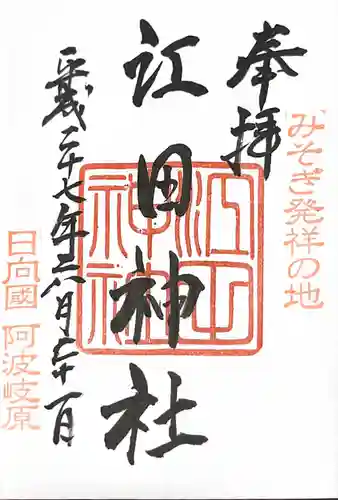 奉拝
みそぎ発祥の地
江田神社
江田神社
平成二十七年三月二十一日
日向國 阿波岐原